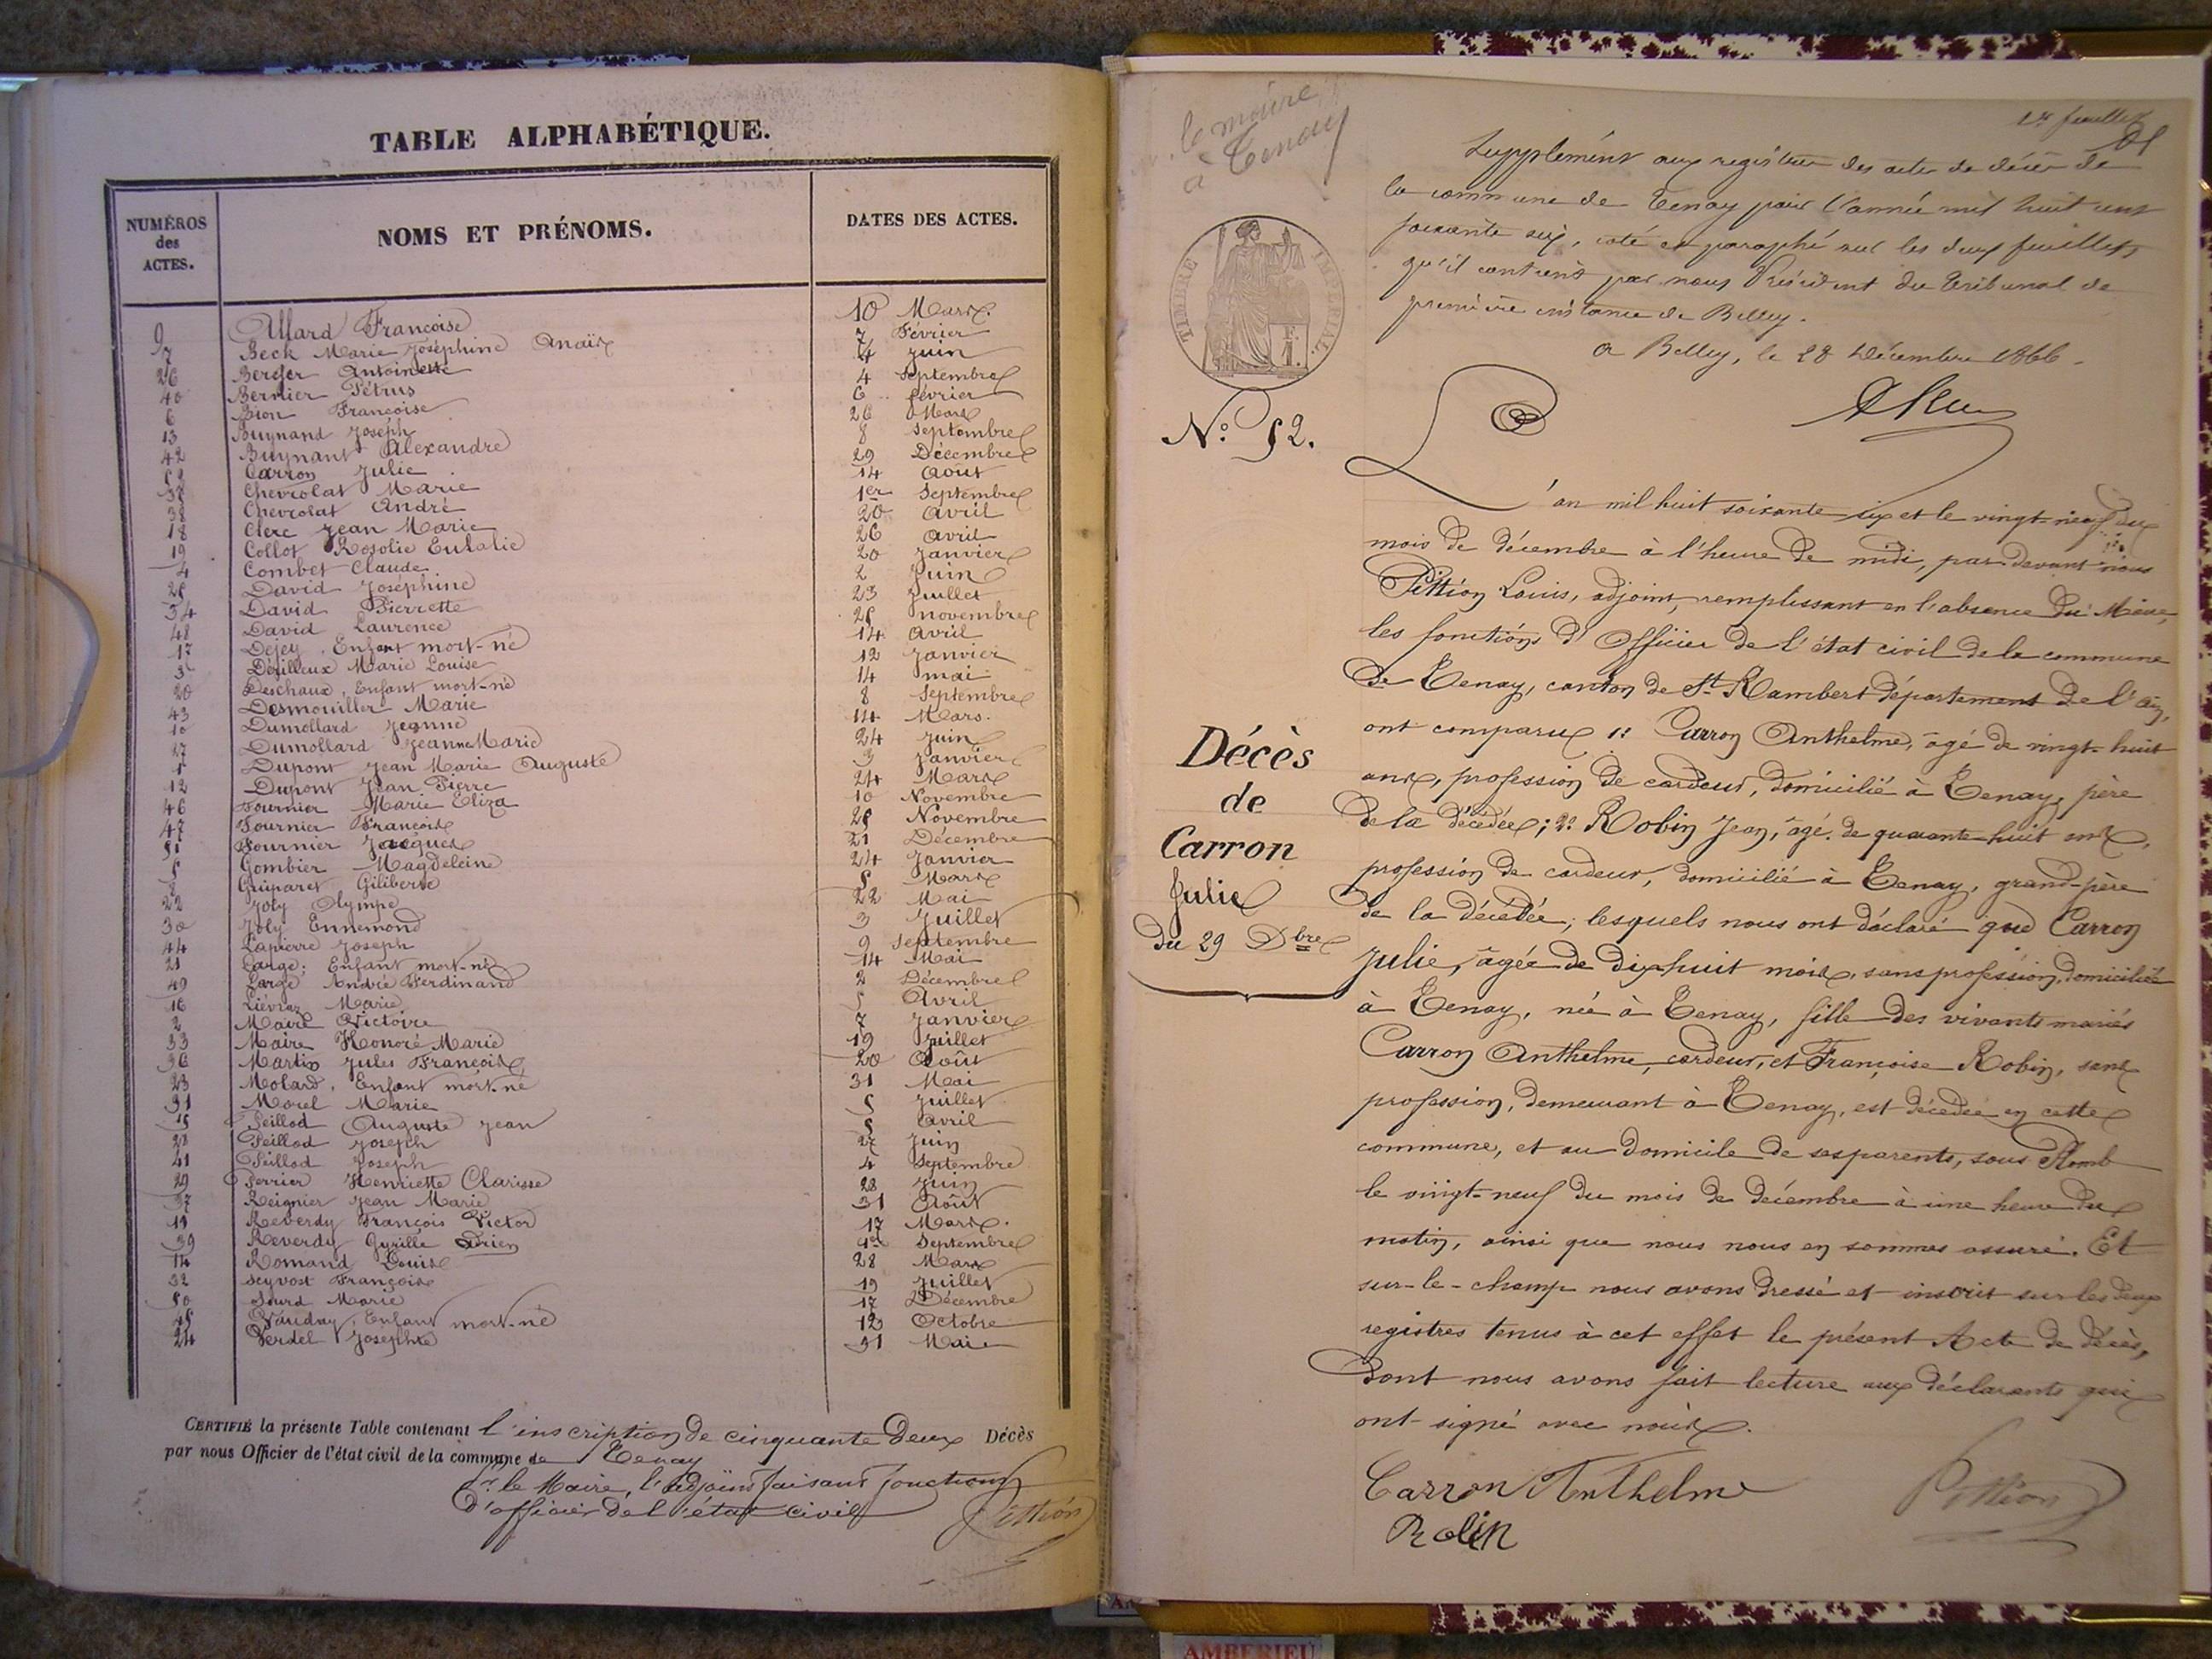 TABLE ALPHABÉTIQUE.
NUMÉROS des ACTES. NOMS ET PRÉNOMS. DATES DES ACTES.
9 Allard Françoise 10 Mars
7 Beck Marie Joséphine Anaïs 7 Février
26 Berger Antoinette 14 juin
40 Bernier Pétrus 4 Septembre
6 Bion Françoise 6 février
13 Buynand Joseph 26 Mars
42 Buynant Alexandre 8 Septembre
52 Carron Julie 29 Décembre
Chevrolat Marie 14 Août
38 Chevrolat André 1er Septembre
18 Clerc Jean Marie 20 Avril
19 Collot Rosolie Eulalie 26 avril
4 Combet Claude 20 Janvier
25 David Joséphine 2 Juin
34 David Pierrette 23 Juillet
48 David Laurence 25 novembre
17 Dejey, Enfant mort-né 14 Avril
3 Marie Louise 12 Janvier
20 Deschaux, Enfant mort-né 14 mai
43 Desmouiller Marie 8 Septembre
10 Dumollard Jeanne 14 Mars.
27 Dumollard Jeanne Marie 24 Juin
1 Dupont Jean Marie Auguste 3 Janvier
12 Dupont Jean Pierre 24 Mars
46 Fournier Marie Eliza 10 Novembre
47 Fournier François 25 Novembre
51 Fournier Jacques 21 Décembre
5 Gombier Magdeleine 24 Janvier
8 Guiparet Giliberte 5 Mars
22 Joly Olympe 22 Mai
30 Joly Ennemond 3 Juillet
44 Lapierre Joseph 9 Septembre
21 Large, Enfant mort-né 14 Mai
49 Large André Ferdinand 2 Décembre
16 Liévraz Marie 5 Avril
2 Maire Victoire 7 Janvier
33 Maire Honoré Marie 19 Juillet
36 Martin Jules François 20 Août
23 Molard, Enfant mort-né 31 Mai
31 Morel Marie 5 Juillet
15 Peillod Auguste Jean 5 Avril
28 Peillod Joseph 27 Juin
41 Peillod Joseph 4 Septembre
29 Perrier Henriette Clarisse 28 Juin
37 Reignier Jean Marie 31 Août
11 Reverdy François Victor 17 Mars.
39 Reverdy Cyrille Adrien 1er Septembre
14 Romand Louis 28 Mars
32 Seyvost François 19 Juillet
50 Sourd Marie 17 Décembre
45 Vauday, Enfant mort-né 12 Octobre
24 Verdel Josephte 31 Mai
CERTIFIÉ la présente Table contenant l'inscription de cinquante deux Décès
par nous Officier de l'état civil de la commune de Tenay
Pr le Maire, l'adjoint faisant fonctions
d'officier de l'état civil
Pittion
le maire
à Tenay
1er feuillet
Supplément aux registres des actes de décès de
la commune de Tenay pour l'année mil huit cent
soixante six, coté et paraphé sur les deux feuillets
qu'il contient par nous Président du Tribunal de
première instance de Belley.
A Belley, le 28 Décembre 1866.
TIMBRE IMPÉRIAL.
1 F.
No. 52.
L'an mil huit soixante six et le vingt-neuf du
mois de décembre à l'heure de midi, par devant nous
Pittion Louis, adjoint, remplissant en l'absence du Maire,
les fonctions d'Officier de l'état civil de la commune
de Tenay, canton de St Rambert département de l'Ain,
ont comparu 1: Carron Anthelme, âgé de vingt-huit
ans, profession de cardeur, domicilié à Tenay, père
de la décédée; 2: Robin Jean, âgé de quarante-huit ans,
profession de cardeur, domicilié à Tenay, grand-père
de la décédée; lesquels nous ont déclaré que Carron
Julie, âgée de dix-huit mois, sans profession, domiciliée
à Tenay, née à Tenay, fille des vivants mariés
Carron Anthelme, cardeur, et Françoise Robin, sans
profession, demeurant à Tenay, est décédée en cette
commune, et au domicile de ses parents, sous Plomb
le vingt-neuf du mois de décembre à une heure du
matin, ainsi que nous nous en sommes assuré. Et
sur-le-champ nous avons dressé et inscrit sur les deux
registres tenus à cet effet le présent Acte de décès,
dont nous avons fait lecture aux déclarants qui
ont signé avec nous.
Décès
de
Carron
Julie
du 29 Dbre
Carron Anthelme
Pittion
Robin
AMBERIEU